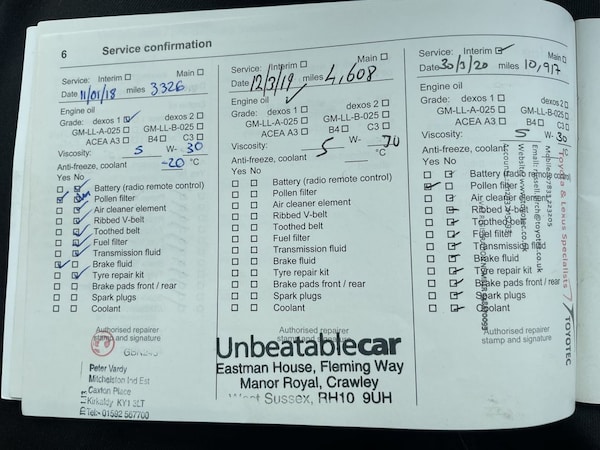 6 Service confirmation
Service: Interim Main
Date 11/01/18 miles 3326
Engine oil
Grade: dexos 1 dexos 2
GM-LL-A-025 GM-LL-B-025
ACEA A3 B4 C3
Viscosity: 5 W- 30
Anti-freeze, coolant -20 °C
Yes No
Battery (radio remote control)
Pollen filter
Air cleaner element
Ribbed V-belt
Toothed belt
Fuel filter
Transmission fluid
Brake fluid
Tyre repair kit
Brake pads front / rear
Spark plugs
Coolant
Authorised repairer
stamp and signature
Peter Vardy
Mitchelston Ind Est
Caxton Place
Kirkcaldy KY1 3LT
Tel: 01592 567700
Service: Interim Main
Date 12/3/19 miles 4,608
Engine oil
Grade: dexos 1 dexos 2
GM-LL-A-025 GM-LL-B-025
ACEA A3 B4 C3
Viscosity: 5 W- 30
Anti-freeze, coolant °C
Yes No
Battery (radio remote control)
Pollen filter
Air cleaner element
Ribbed V-belt
Toothed belt
Fuel filter
Transmission fluid
Brake fluid
Tyre repair kit
Brake pads front / rear
Spark plugs
Coolant
Authorised repairer
stamp and signature
Unbeatablecar
Eastman House, Fleming Way
Manor Royal, Crawley
West Sussex, RH10 9UH
Service: Interim Main
Date 30/3/20 miles 10,917
Engine oil
Grade: dexos 1 dexos 2
GM-LL-A-025 GM-LL-B-025
ACEA A3 B4 C3
Viscosity: 5 W- 30
Anti-freeze, coolant °C
Yes No
Battery (radio remote control)
Pollen filter
Air cleaner element
Ribbed V-belt
Toothed belt
Fuel filter
Transmission fluid
Brake fluid
Tyre repair kit
Brake pads front / rear
Spark plugs
Coolant
Authorised repairer
stamp and signature
TOYOTEC
Toyota & Lexus Specialists